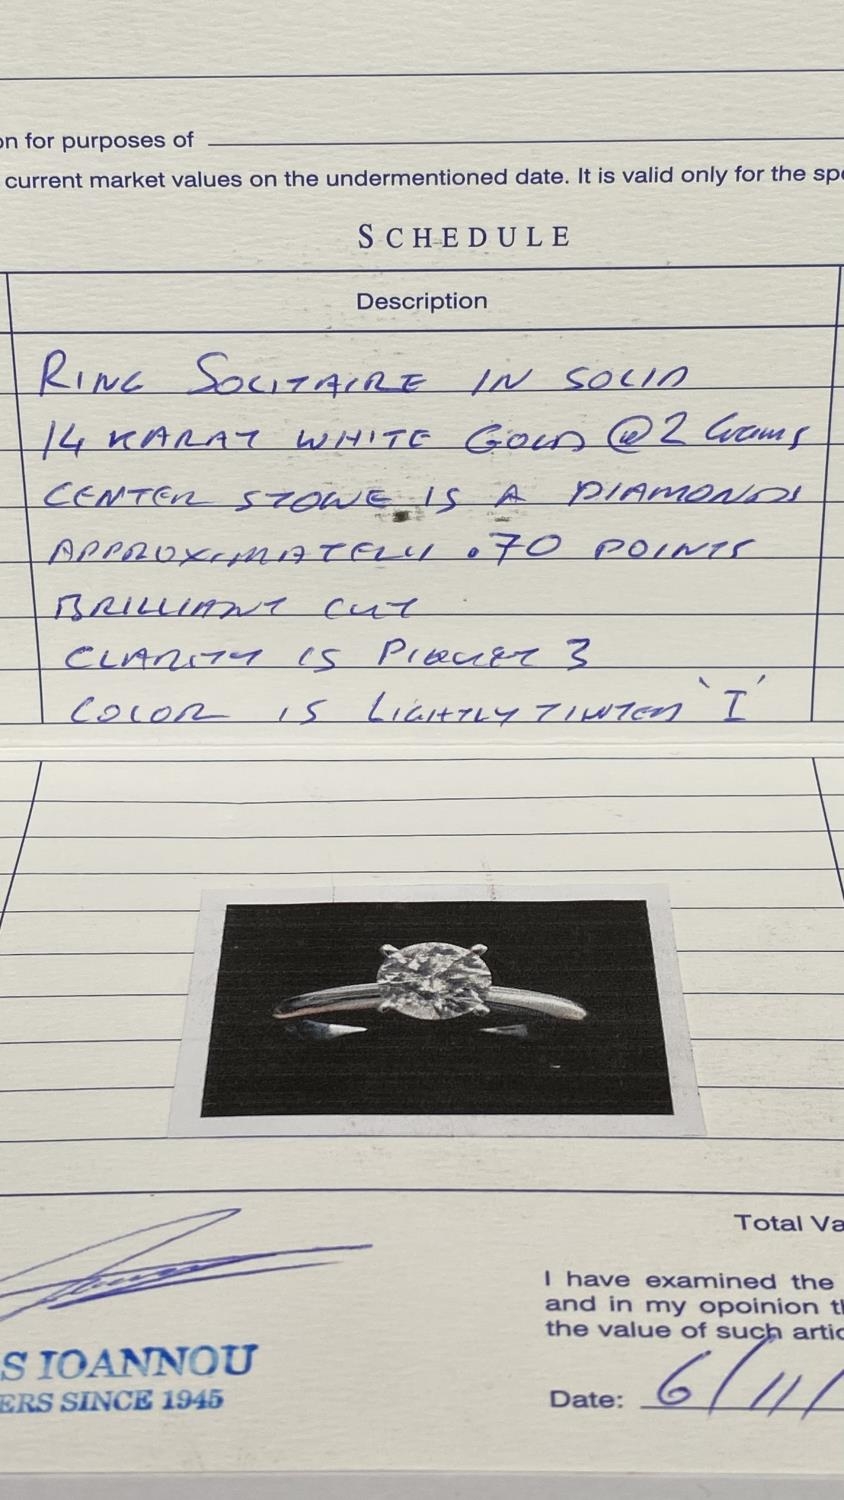 on for purposes of
current market values on the undermentioned date. It is valid only for the spe
SCHEDULE
Description
RING SOLITAIRE IN SOLID
14 KARAT WHITE GOLD @ 2 Grams
CENTER STONE IS A DIAMONDS
APPROXIMATELY .70 POINTS
BRILLIANT CUT
CLARITY IS PIQUET 3
COLOR IS LIGHTLY TINTED 'I'
Total Va
I have examined the
and in my opoinion th
the value of such artic
S IOANNOU
ERS SINCE 1945
Date: 6/11/